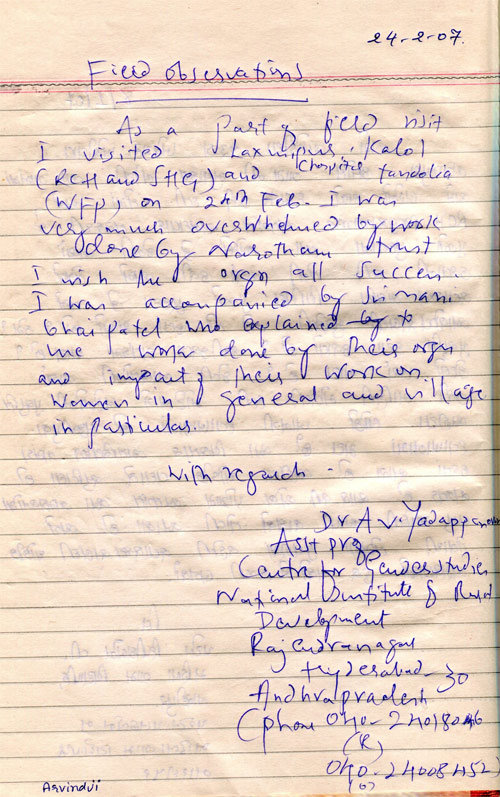 24-2-07.
Field observations
As a part of field visit
I visited Laxmipura, Kalol
(RCH and SHG) and Chospita Tandolia
(WFP) on 24th Feb. I was
very much overwhelmed by work
done by Narotham trust
I wish the orgn all success.
I was accompanied by Sri mani
bhai patel who explained by to
me work done by their orgn
and impact of their work on
women in general and village
in particular.
with regards.
Dr A.V. Yadappanavar
Asst prof
Centre for Gender studies
National Institute of Rural
Development
Rajendranagar
Hyderabad-30
Andhrapradesh
(phone 040-24018046
(R)
040-24008452)
(o)